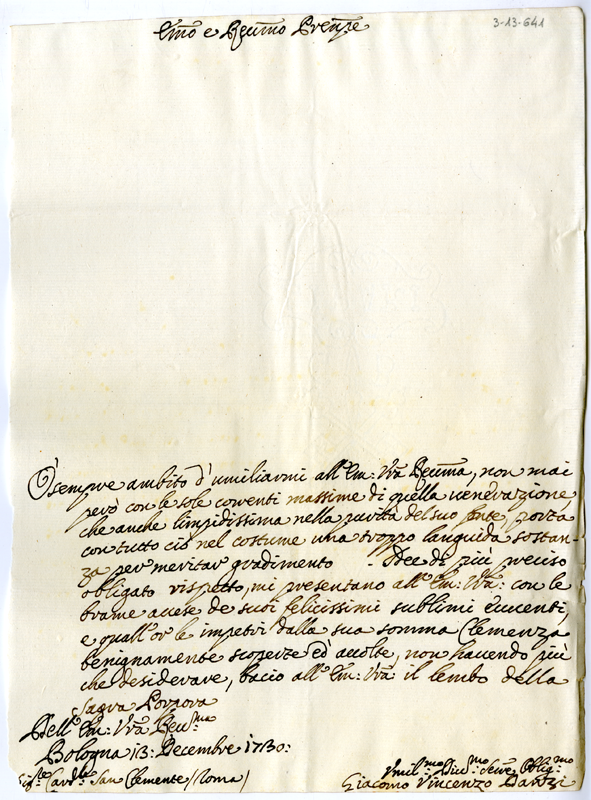 3-13-641
Em̃o e Reṽmo Prẽnpe
Ò sempre ambito d'umiliarmi all'Em: Vr̃a Reṽma, non mai
però con le sole correnti massime di quella venerazione,
che anche limpidissima nella purità del suo fonte, porta
con tutto ciò nel costume una troppo languida sostan-
za per meritar gradimento. Idee di più preciso
obligato rispetto, mi presentano all'Em: Vr̃a: con le
brame accese de suoi felicissimi sublimi
e quall'or le impetri dalla sua somma Clemenza
benignamente scoperte ed accolte, non havendo più
che desiderare, bacio all'Em: Vr̃a il lembo della
Sagra Porpora
Dell'Em: Vr̃a Rev.ma
Bologna 13: Decembre 1730:
Sig.re Card.le San Clemente /Roma/
Umil.mo Div.mo Serv.e Oblig.mo
Giacomo Vincenzo